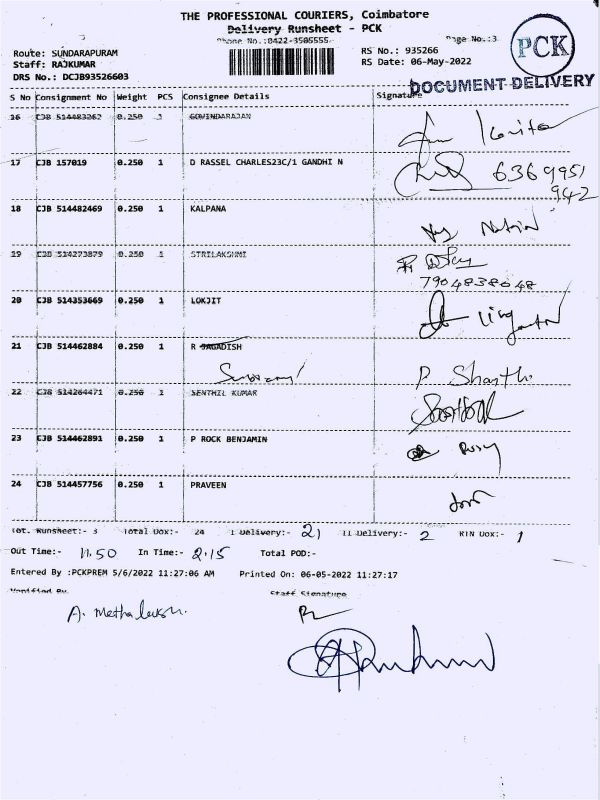 THE PROFESSIONAL COURIERS, Coimbatore
Delivery Runsheet - PCK
Phone No.:0422-3506555 Page No.:3
PCK
Route: SUNDARAPURAM RS No.: 935266
Staff: RAJKUMAR RS Date: 06-May-2022
DRS No.: DCJB93526603
DOCUMENT DELIVERY
S No Consignment No Weight PCS Consignee Details Signature
16 CJB 514483262 0.250 1 GOVINDARAJAN
17 CJB 157019 0.250 1 D RASSEL CHARLES23C/1 GANDHI N 6369951
942
18 CJB 514482469 0.250 1 KALPANA
19 CJB 514273879 0.250 1 STRILAKSHMI
7904838048
20 CJB 514353669 0.250 1 LOKJIT
21 CJB 514462884 0.250 1 R JAGADISH
P Shanthi
22 CJB 514264471 0.250 1 SENTHIL KUMAR
23 CJB 514462891 0.250 1 P ROCK BENJAMIN
24 CJB 514457756 0.250 1 PRAVEEN
Tot. Runsheet:- 3 Total Dox:- 24 I Delivery:- 21 II Delivery:- 2 RTN Dox:- 1
Out Time:- 11.50 In Time:- 2.15 Total POD:-
Entered By :PCKPREM 5/6/2022 11:27:06 AM Printed On: 06-05-2022 11:27:17
Verified By Staff Signature